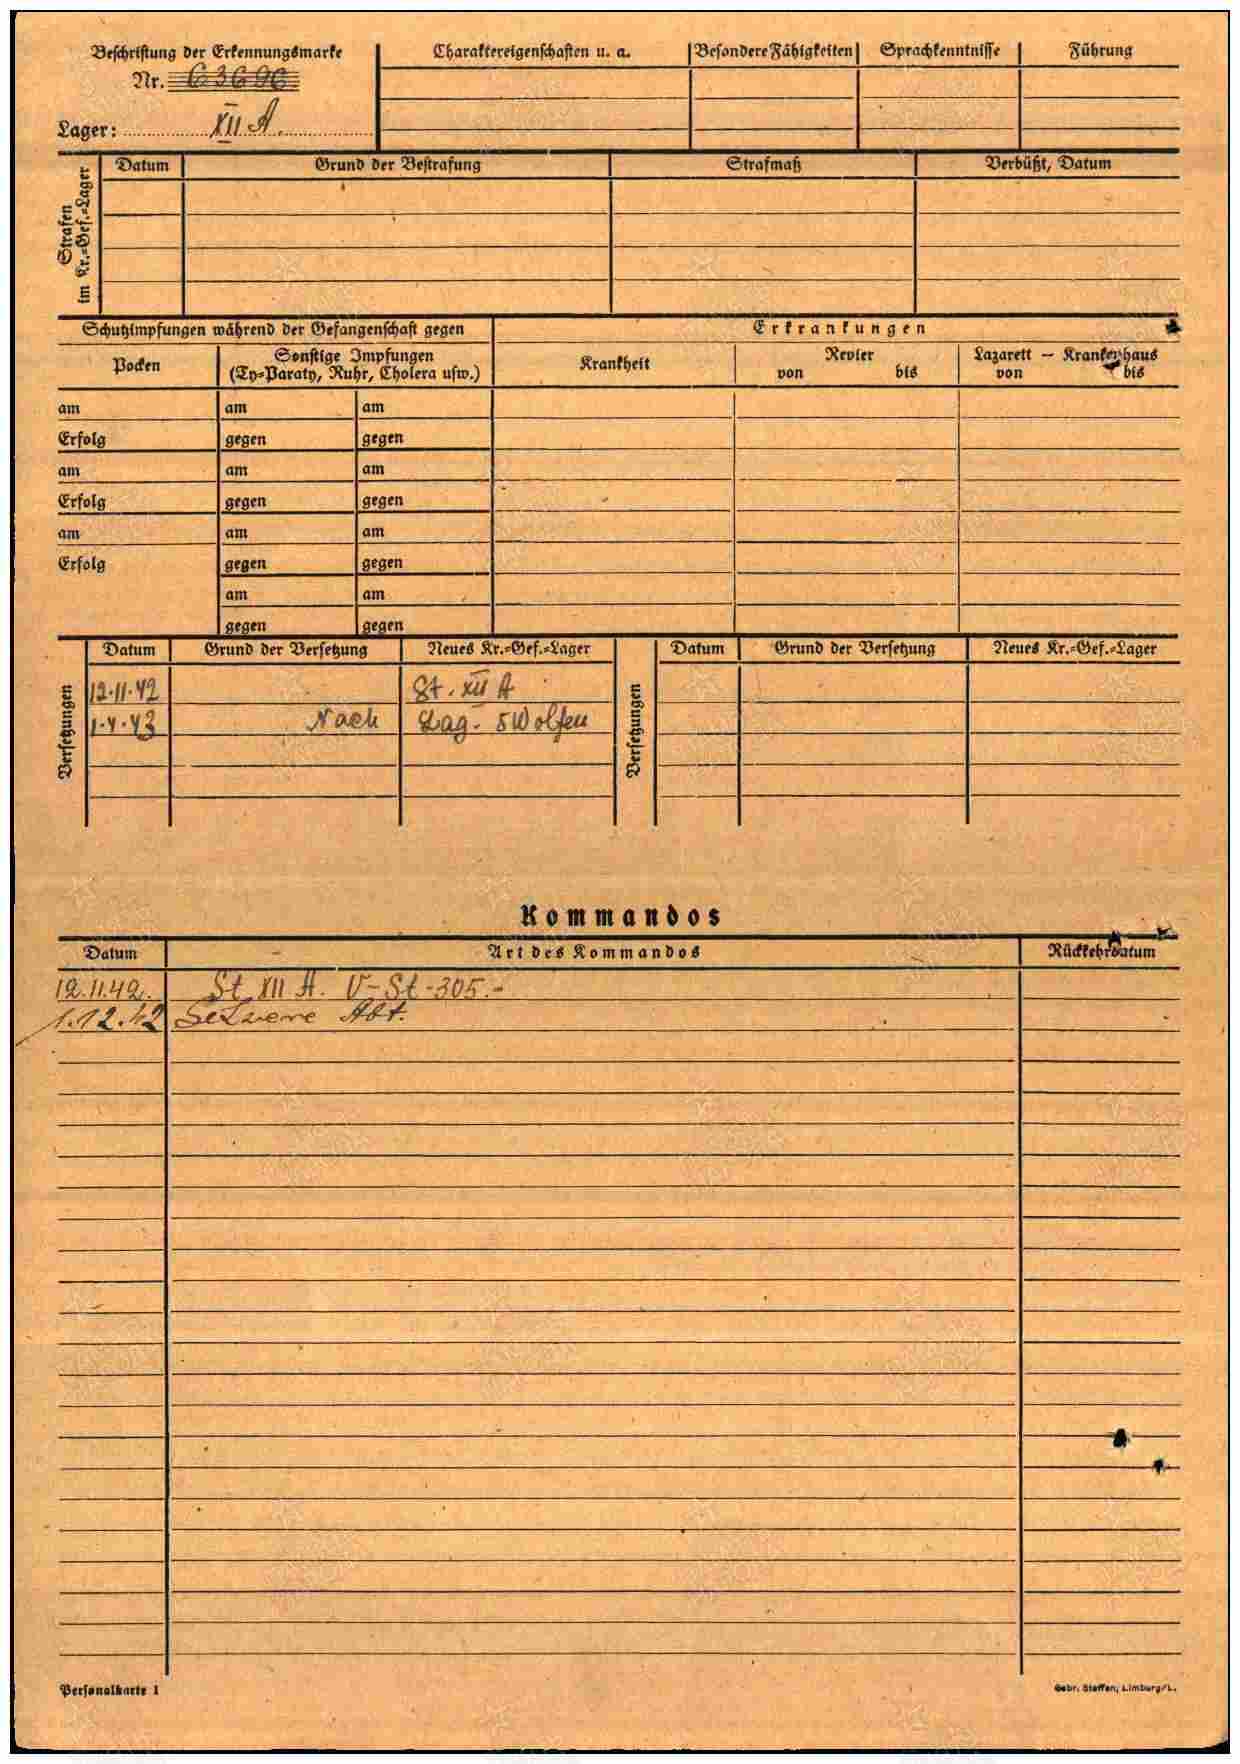 Beschriftung der Erkennungsmarke
Nr. 63696
Lager: XII A.
Charaktereigenschaften u. a.
Besondere Fähigkeiten
Sprachkenntnisse
Führung
Strafen
im Kr.=Gef.=Lager
Datum
Grund der Bestrafung
Strafmaß
Verbüßt, Datum
Schutzimpfungen während der Gefangenschaft gegen
Erkrankungen
Pocken
Sonstige Impfungen
(Ty=Paraty, Ruhr, Cholera usw.)
Krankheit
Revier
von bis
Lazarett — Krankenhaus
von bis
am am am
Erfolg gegen gegen
am am am
Erfolg gegen gegen
am am am
Erfolg gegen gegen
am am
gegen gegen
Versetzungen
Datum Grund der Versetzung Neues Kr.=Gef.=Lager
12.11.42 St. XII A
1.4.43 Nach Lag. Wolfen
Versetzungen
Datum Grund der Versetzung Neues Kr.=Gef.=Lager
Kommandos
Datum Art des Kommandos Rückkehrdatum
12.11.42. St XII A. V-St-305.-
1.12.42 Abt.
Personalkarte 1
Gebr. Steffen, Limburg/L.
НАМЯТЬ
НАРОДА